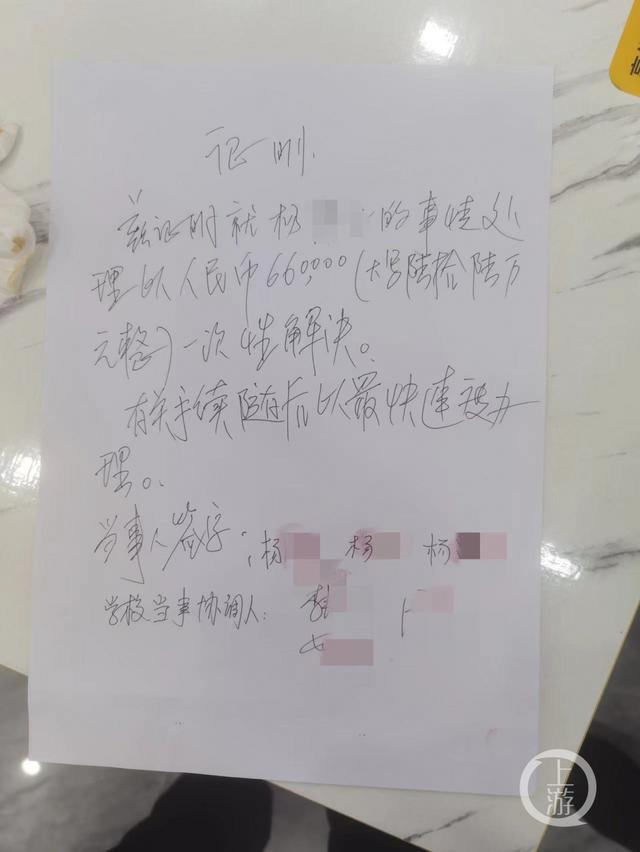 证明.
兹证明就杨 的事情处
理以人民币660000(大写陆拾陆万
元整)一次性解决。
有关手续随后以最快速度办
理。
当事人签字: 杨 杨 杨
学校当事协调人:
上游